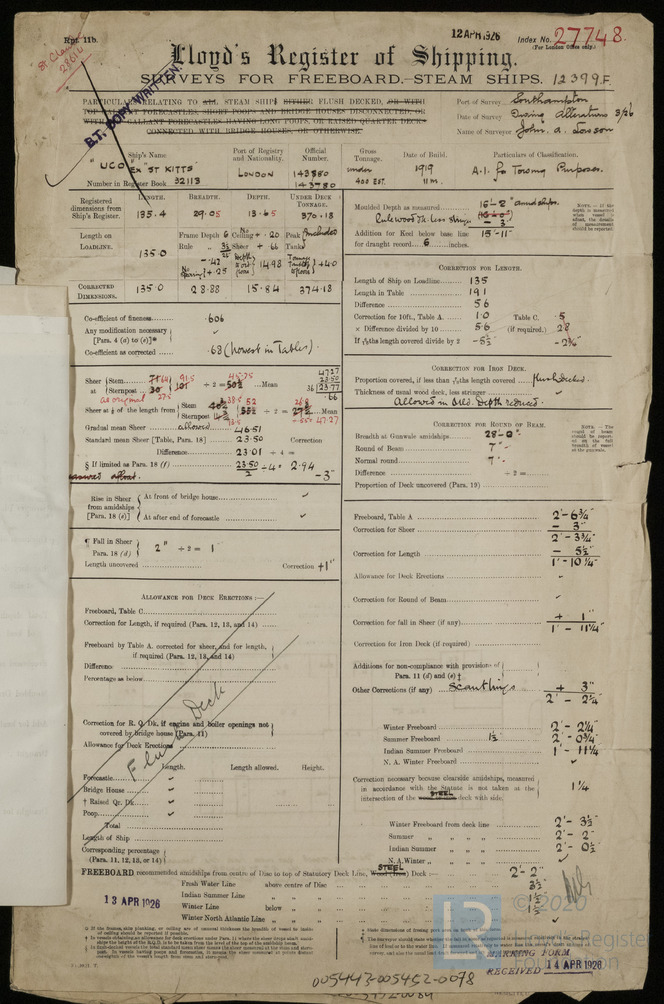 Rpt. 11b.
12 APR 1926
Index No. 27748.
(For London Office only.)
St. Clears
28614
Lloyd's Register of Shipping.
SURVEYS FOR FREEBOARD.—STEAM SHIPS. 12399F.
B.T. COPY WRITTEN.
PARTICULARS RELATING TO ALL STEAM SHIPS EITHER FLUSH DECKED, OR WITH
TOP GALLANT FORECASTLES, SHORT POOPS AND BRIDGE HOUSES DISCONNECTED, OR
WITH TOP GALLANT FORECASTLES HAVING LONG POOPS, OR RAISED QUARTER DECKS
CONNECTED WITH BRIDGE HOUSES, OR OTHERWISE.
Port of Survey Southampton
Date of Survey During Alterations 3/26
Name of Surveyor John. A. Lawson
Ship's Name
"UCO" Ex "ST KITTS"
Number in Register Book 32113
Port of Registry and Nationality.
LONDON
Official Number.
143880
143780
Gross Tonnage.
under
400 EST.
Date of Build.
1919
11 m.
Particulars of Classification.
A.1. for Towing Purposes.
Registered dimensions from Ship's Register.
LENGTH. BREADTH. DEPTH. UNDER DECK TONNAGE.
135.4 29.05 13.65 370.18
Length on LOADLINE. 135.0
Frame Depth 6 Ceiling + .20 Peak Tanks Included
Rule 3½ Sheer + .66
- .42
+ .25
14.98
+4.0
CORRECTED DIMENSIONS. 135.0 28.88 15.84 374.18
Moulded Depth as measured 16-8" amidships.
Rule wood dk. less stringer
Addition for Keel below base line 15'-11"
for draught record 6 inches.
CORRECTION FOR LENGTH.
Length of Ship on Loadline 135
Length in Table 191
Difference 56
Correction for 10ft., Table A. 1.0 Table C. .5
× Difference divided by 10 5.6 (if required.) 2.8
If 6/10ths length covered divide by 2 -5½" -2¾"
Co-efficient of fineness .606
Any modification necessary [Para. 4 (a) to (e)]*
Co-efficient as corrected .68 (Lowest in Tables).
CORRECTION FOR IRON DECK.
Proportion covered, if less than 7/10ths length covered flush decked.
Thickness of usual wood deck, less stringer
Allowed in Mld. Depth reduced.
Sheer at Stem 91.5 45.75
Sternpost ÷ 2 = Mean
as original 27.5
.66
Sheer at ¼ of the length from Stem 38.5 52
Sternpost 13.5 ÷ 2 = Mean
Gradual mean Sheer allowed 46.51
Standard mean Sheer [Table, Para. 18] 23.50 Correction
Difference 23.01 ÷ 4 =
§ If limited as Para. 18 (f) 23.50/2 ÷ 4 = 2.94
-3"
measured afloat.
CORRECTION FOR ROUND OF BEAM.
Breadth at Gunwale amidships 28-0"
Round of Beam 7"
Normal round 7"
Difference ÷ 2 =
Proportion of Deck uncovered (Para. 19)
Rise in Sheer from amidships [Para. 18 (e)]
At front of bridge house
At after end of forecastle
¶ Fall in Sheer Para. 18 (d) 2" ÷ 2 = 1
Length uncovered Correction +1"
Freeboard, Table A 2'-6¾"
Correction for Sheer - 3"
2'-3¾"
Correction for Length - 5½"
1'-10¼"
Allowance for Deck Erections
Correction for Round of Beam
Correction for fall in Sheer (if any) + 1"
1'-11¼"
Correction for Iron Deck (if required)
Additions for non-compliance with provisions of Para. 11 (d) and (e) ‡
Other Corrections (if any) Scantlings + 3"
2'-2¼"
ALLOWANCE FOR DECK ERECTIONS:—
Freeboard, Table C
Correction for Length, if required (Para. 12, 13, and 14)
Freeboard by Table A. corrected for sheer, and for length, if required (Para. 12, 13, and 14)
Difference
Percentage as below
Correction for R. Q. Dk. if engine and boiler openings not covered by bridge house (Para. 11)
Allowance for Deck Erections
Flush Deck
Length. Length allowed. Height.
Forecastle
Bridge House
† Raised Qr. Dk.
Poop
Total
Length of Ship
Corresponding percentage (Para. 11, 12, 13, or 14)
Winter Freeboard 2'-2¼"
Summer Freeboard 1½ 2'-0¾"
Indian Summer Freeboard 1'-11¼"
N. A. Winter Freeboard
Correction necessary because clearside amidships, measured in accordance with the Statute is not taken at the intersection of the STEEL deck with side 1¼
Winter Freeboard from deck line 2'-3½"
Summer " " " " 2'-2"
Indian Summer " " " " 2'-0½"
N. A. Winter " " " "
FREEBOARD recommended amidships from centre of Disc to top of Statutory Deck Line, STEEL Wood (Iron) Deck:— 2'-2"
Fresh Water Line above centre of Disc 3½
Indian Summer Line " " 1½
Winter Line below " 1½
Winter North Atlantic Line " "
13 APR 1926
MARKING FORM
RECEIVED 14 APR 1926
© 2020
Lloyd's Register
Foundation
005443-005452-0078